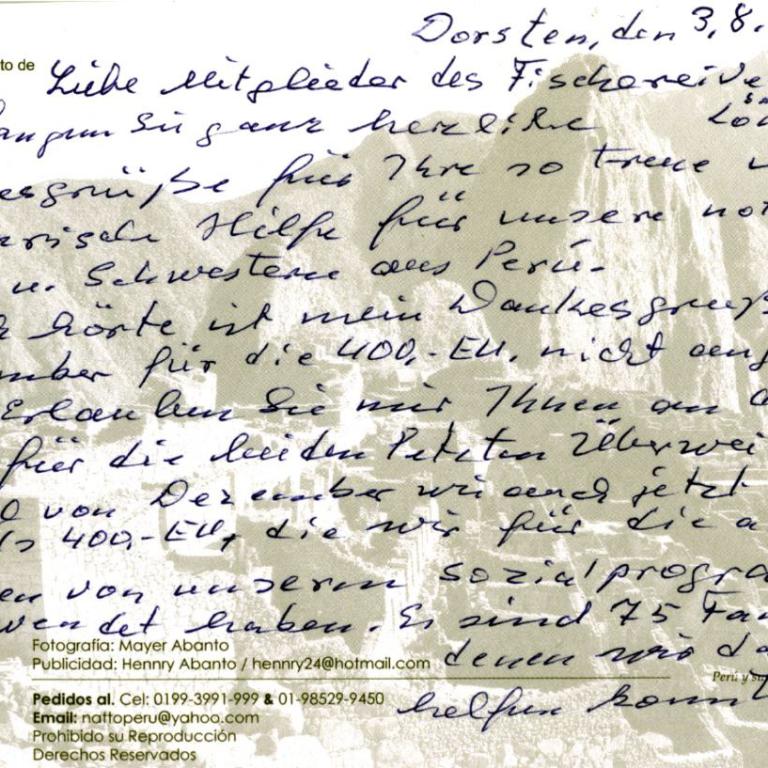 Dorsten, den 3.8.
to de
Liebe Mitglieder des Fischereive
angen Sie ganz herzliche
esgrüße für Ihre so treue
erische Hilfe für unsere not
u. Schwestern aus Perú.
hörte ist mein Dankesgruß
mber für die 400,- EU. nicht ang
Erlauben Sie mir Ihnen an
für die beiden letzten Überwei
von Dezember wie auch jetzt
ls 400,- EU, die wir für die a
en von unserem Sozialprogra
wendet haben. Es sind 75 Fam
denen wir da
helfen konnt
Fotografía: Mayer Abanto
Publicidad: Hennry Abanto / hennry24@hotmail.com
Perú y su
Pedidos al. Cel: 0199-3991-999 & 01-98529-9450
Email: nattoperu@yahoo.com
Prohibido su Reproducción
Derechos Reservados